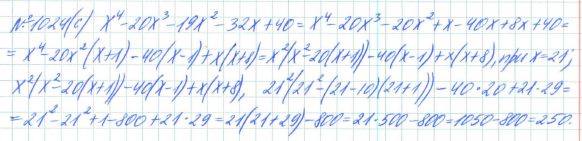 №1024(с) x⁴-20x³-19x²-32x+40 = x⁴-20x³-20x²+x-40x+8x+40=
= x⁴-20x²(x+1)-40(x-1)+x(x+8)=x²(x²-20(x+1))-40(x-1)+x(x+8), при x=21;
x²(x²-20(x+1))-40(x-1)+x(x+8), 21²(21²-(21-10)(21+1))-40·20+21·29=
=21²-21²+1-800+21·29=21(21+29)-800=21·500-800=1050-800=250.